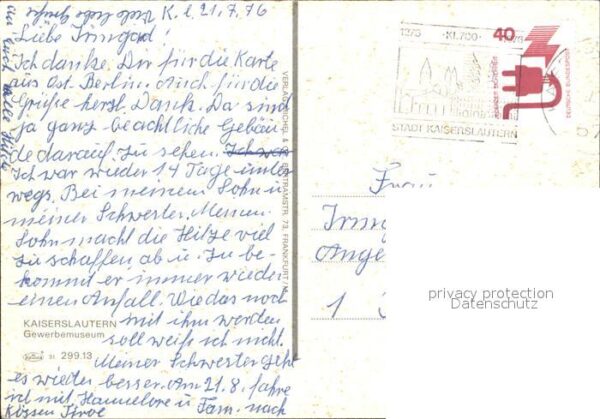 K. l. 21.7.76
Liebe Irmgard!
Ich danke Dir für die Karte
aus Ost-Berlin. Auch für die
Grüße herzl. Dank. Da sind
ja ganz beachtliche Gebäu-
de darauf zu sehen. Ich war
Ich war wieder 14 Tage unter-
wegs. Bei meinem Sohn u.
meiner Schwester. Meinem
Sohn macht die Hitze viel
zu schaffen ab u. zu be-
kommt er immer wieder
einen Anfall. Wie das noch
mit ihm werden
soll weiß ich nicht.
Meiner Schwester geht
es wieder besser. Am 21.8. fahre
ich mit Hannelore u. Fam. nach
Kössen
KAISERSLAUTERN
Gewerbemuseum
31 299.13
73, FRANKFURT/M.
1276 · XI.700 · 1976
STADT KAISERSLAUTERN
40
DEUTSCHE BUNDESPOST
Frau
1
privacy protection
Datenschutz